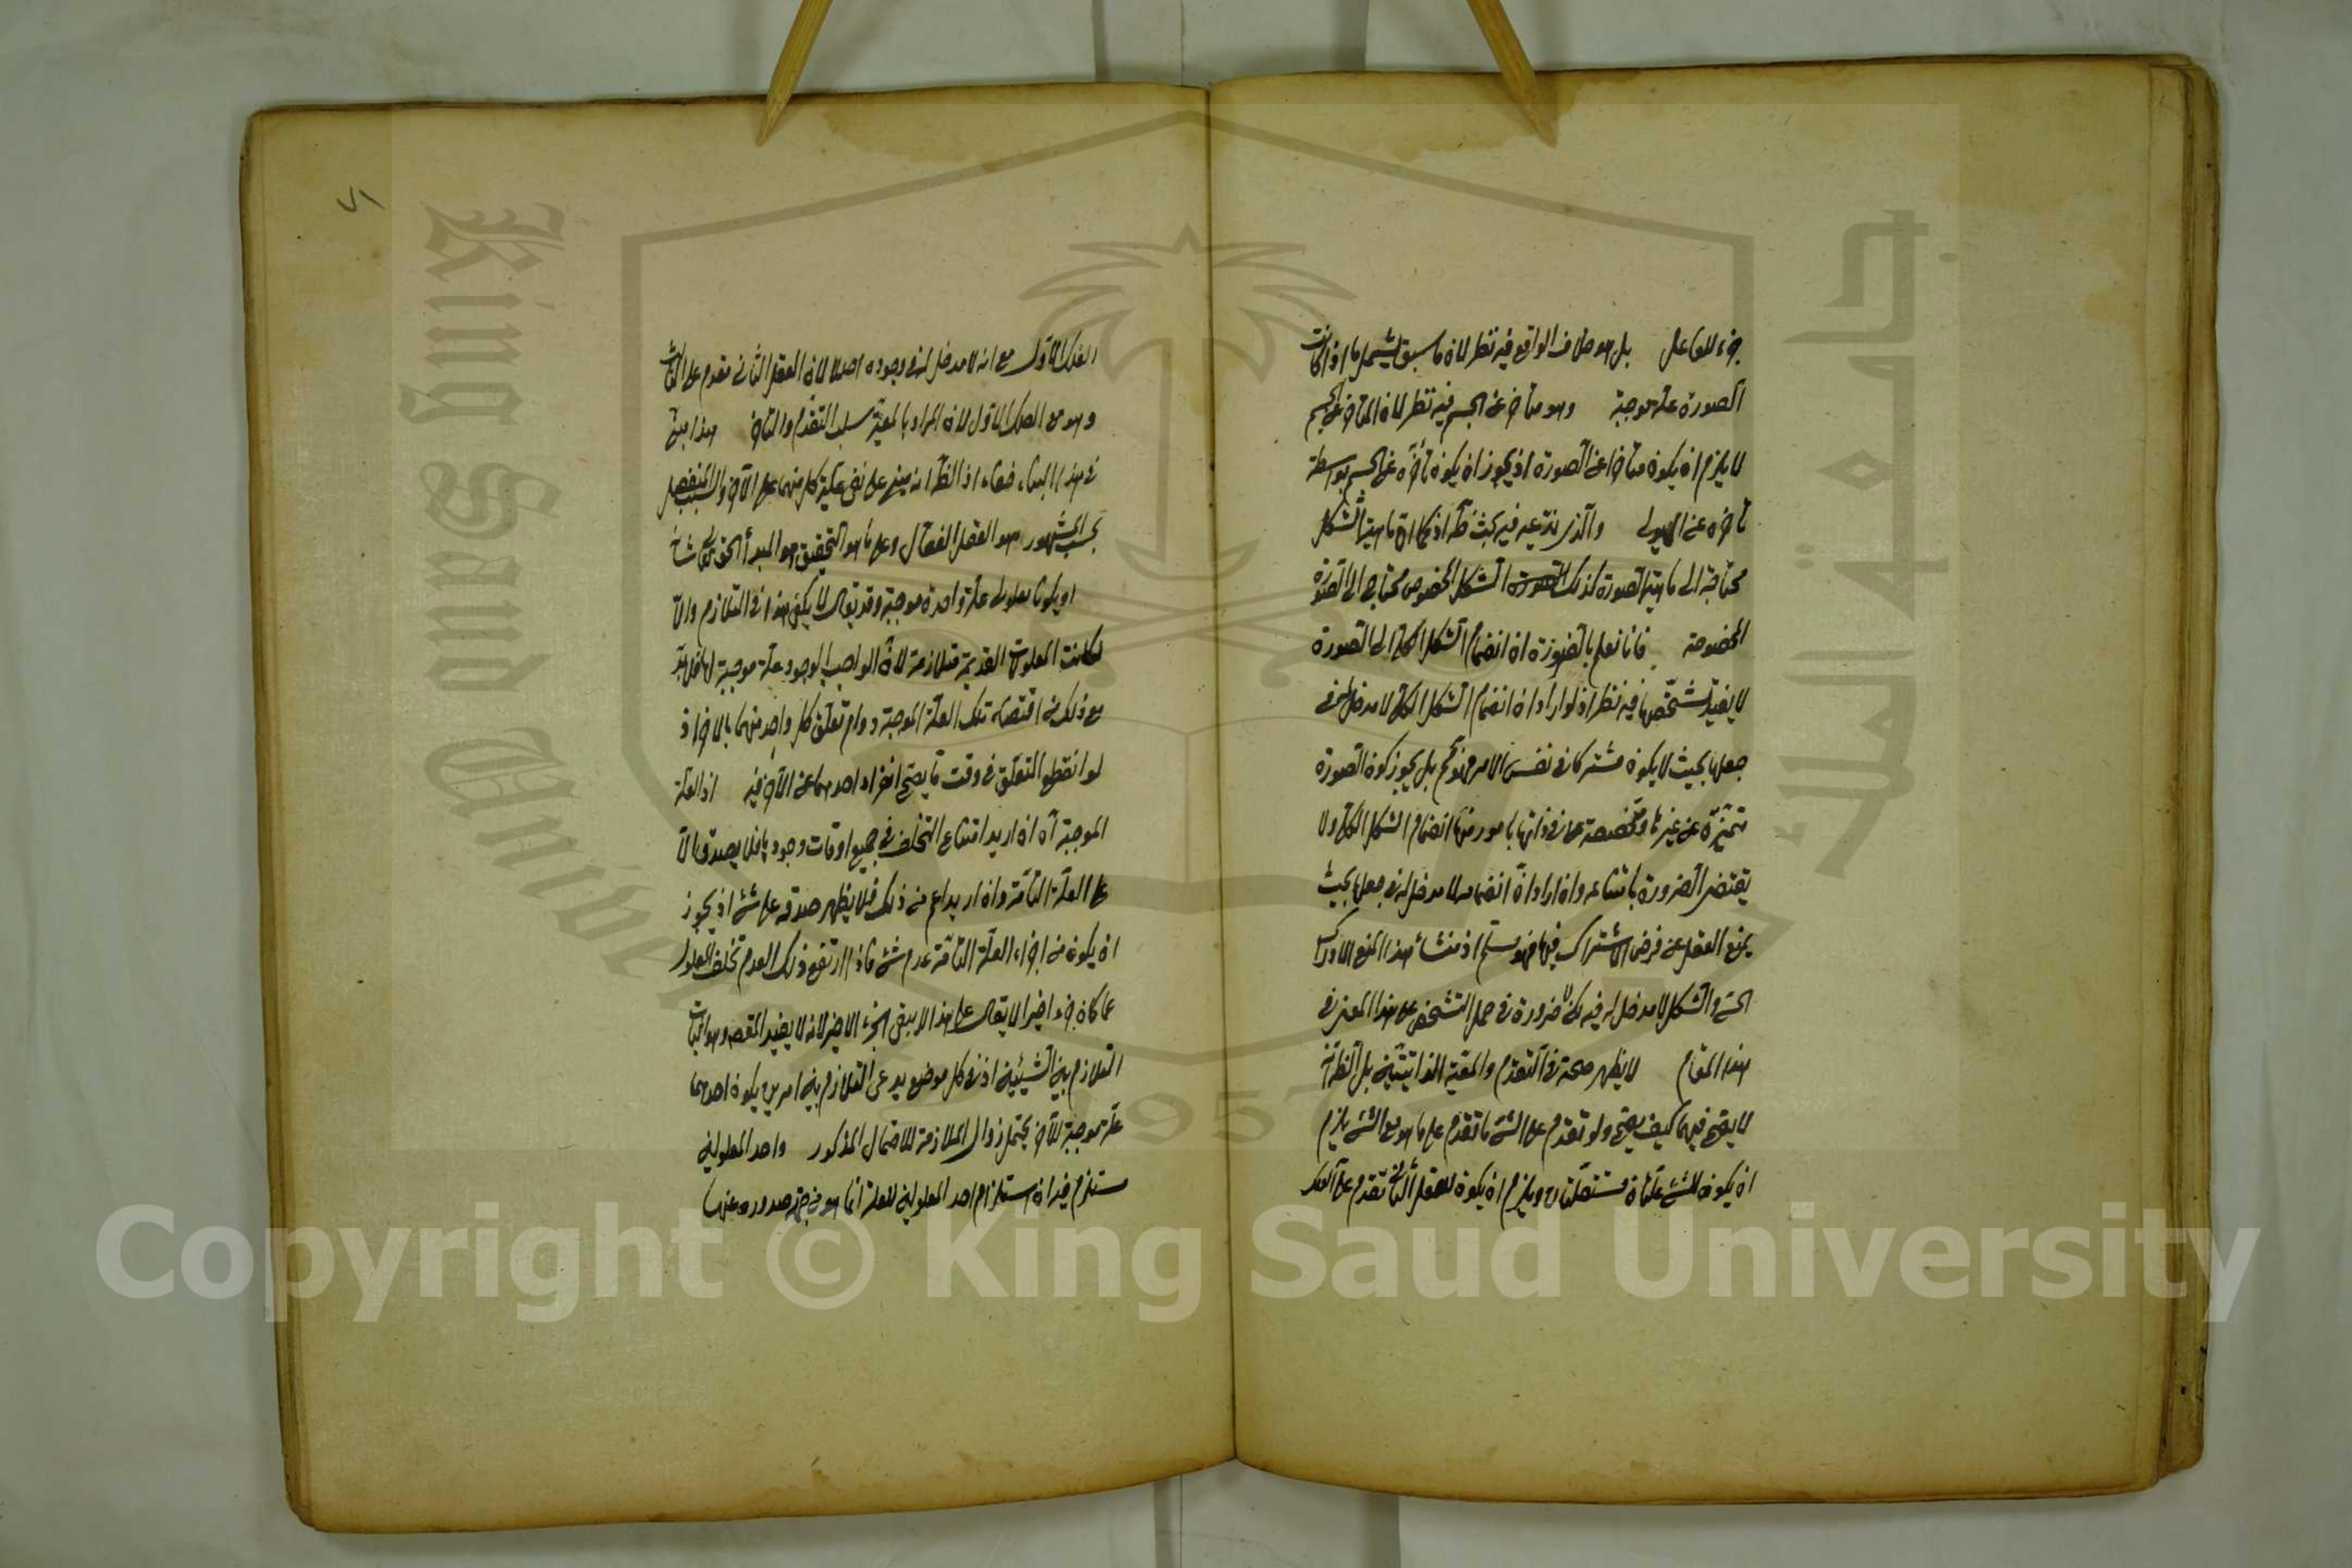 جزء للفاعل بل هو خلاف الواقع فيه نظر لان ما سبق يشمل ما اذا كانت
الصورة علة موجبة وهو متأخر عن الجسم فيه نظر لان المتأخر عن الجسم
لا يلزم ان يكون متأخرا عن الصورة اذ يجوز ان يكون تأخره عن الجسم بواسطة
تأخره عن الهيولى والذي ندعيه فيه بحث ظ اذ كما ان ماهية الشكل
محتاجة الى ماهية الصورة كذلك الشكل المخصوص محتاج الى الصورة
المخصوصة فانا نعلم بالضرورة ان انضمام الشكل الكلي الى الصورة
لا يفيد تشخصها فيه نظر اذ لو اراد ان انضمام الشكل الكلي لا مدخل له في
جعلها بحيث لا يكون مشتركا في نفس الامر فهو ثم بل يجوز كون الصورة
متميزة عن غيرها ومخصصة في ذاتها بامور منها انضمام الشكل الكلي ولا
تقتضي الضرورة بامتناعه وان اراد ان انضمامه لا مدخل له في جعلها بحيث
يمنع العقل عن فرض الاشتراك فيها فهو مسلم اذ منشأ هذا المنع الادراك
الحسي والشكل لا مدخل له فيه لكن لا ضرورة في حمل التشخص على هذا المعنى في
هذا المقام لا يظهر صحته في التقدم والمعية الذاتيتين بل الظ انه
لا يصح فيهما كيف يصح ولو تقدم على الشئ ما تقدم على ما هو مع الشئ يلزم
ان يكون للشئ علتان مستقلتان ويلزم ان يكون للعقل الثاني تقدم على الفلك
٧١
الفلك الاول مع انه لا مدخل له في وجوده اصلا لان العقل الثاني مقدم على الثالث
وهو مع الفلك الاول لان المراد بالمعية سلب التقدم والتأخر هذا مبني
في هذا البناء خفاء اذ الظ انه مبني على نفي علية كل منهما على الآخر والسبب المنفصل
بحسب المشهور هو العقل الفعال وعلى ما هو التحقيق هو المبدأ الحق تعالى شأنه
او يكونا معلولي علة واحدة موجبة وقد يقال لا يكفي هذا في التلازم والا
لكانت المعلولات القديمة متلازمة لان الواجب الوجود علة موجبة لها فلابد
مع ذلك من اقتضاء تلك العلة الموجبة دوام تعلق كل واحد منهما بالآخر اذ
لو انقطع التعلق في وقت ما يصح انفراد احدهما عن الآخر فيه اذ العلة
الموجبة آه ان اريد امتناع التخلف في جميع اوقات وجودها فلا يصدق الا
على العلة التامة وان اريد اعم من ذلك فلا يظهر صدقه على شئ اذ يجوز
ان يكون من اجزاء العلة التامة عدم شئ فاذا ارتفع ذلك العدم تخلف المعلول
عما كان جزء اخيرا لا يقال على هذا لا يبقى الجزء الاخير لانه لا يفيد المقصود وهو اثبات
التلازم بين الشيئين اذ في كل موضع يدعى التلازم بين امرين يكون احدهما
علة موجبة للآخر يحتمل زوال الملازمة للاحتمال المذكور واحد المعلولين
مستلزم فيه ان استلزام احد المعلولين للعلة انما هو من جهة صدوره عنها
Copyright © King Saud University
King Saud University